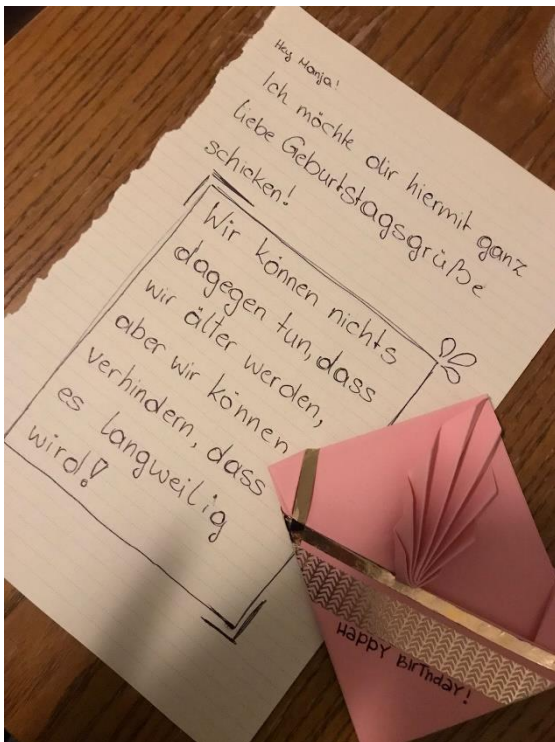 Hey Manja!
Ich möchte dir hiermit ganz
liebe Geburtstagsgrüße
schicken!
Wir können nichts
dagegen tun, dass
wir älter werden,
aber wir können
verhindern, dass
es langweilig
wird!
HAPPY BIRTHDAY!